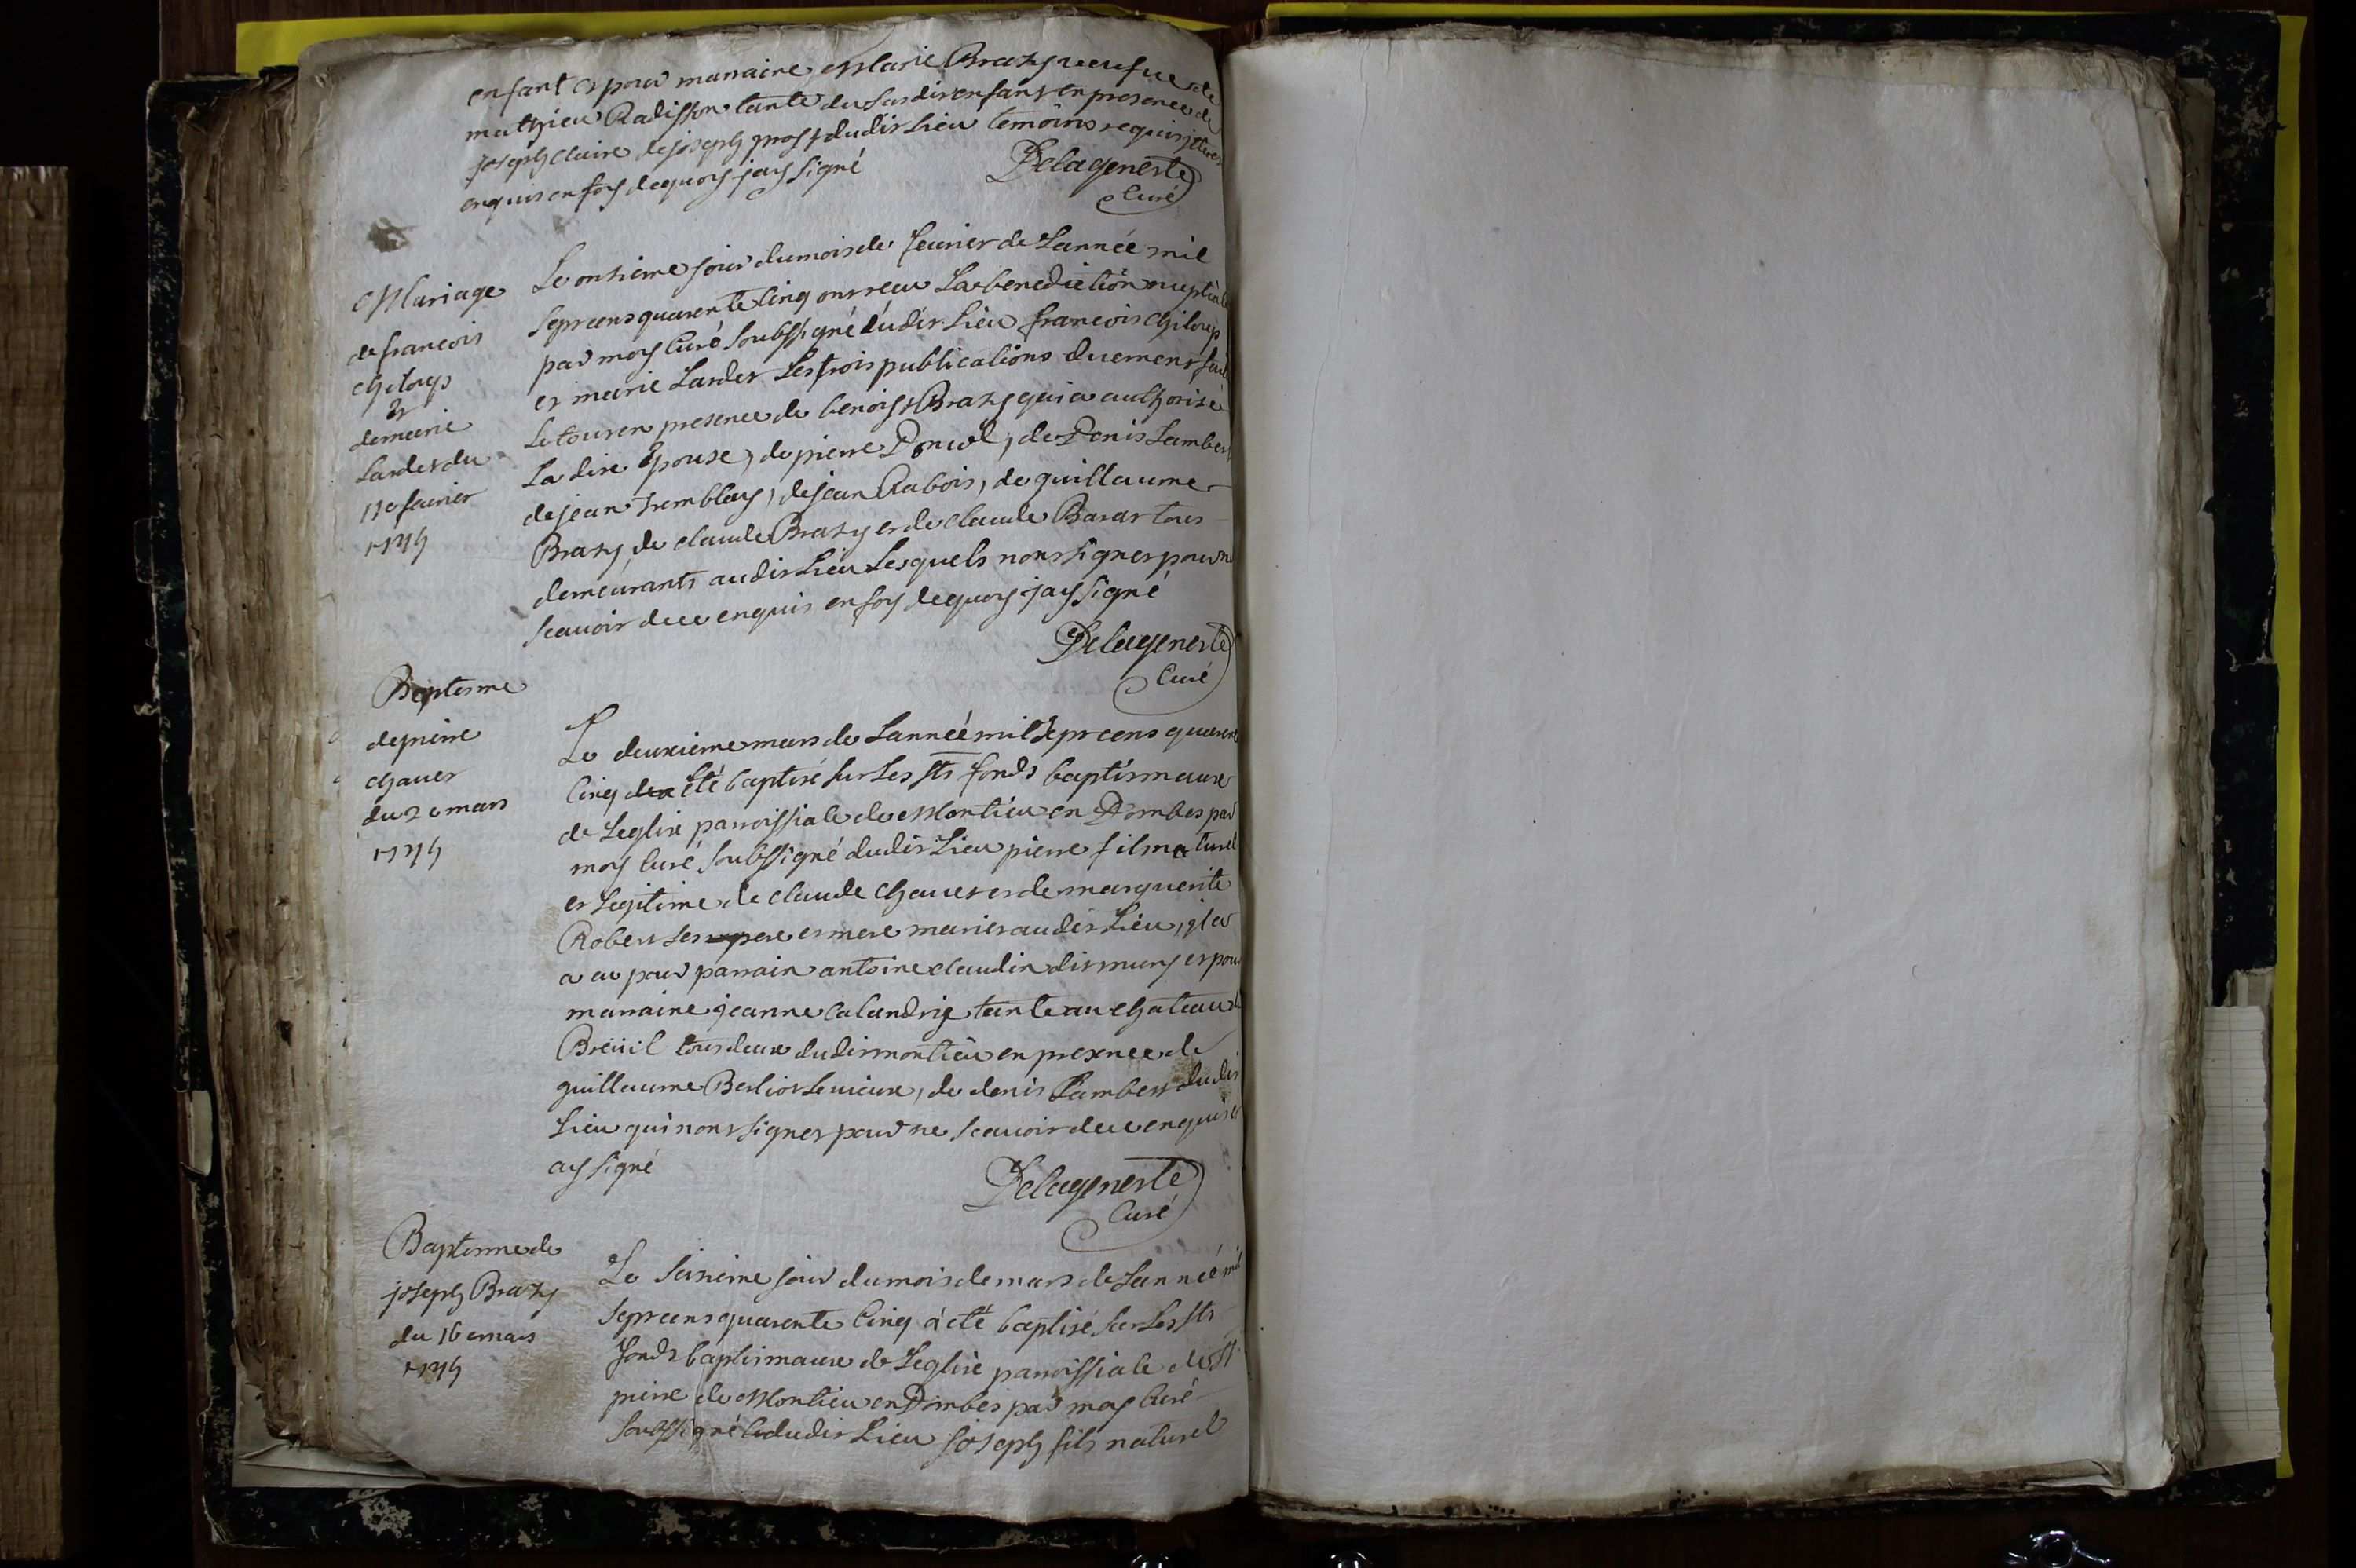 enfant et pour marraine Marie Brazy veufue de
mathieu Radisson tante du susdit enfant en presence de
joseph claire de joseph gros dudit Lieu temoins requis
enquis en foy dequoy jay signé
Delageneste
Curé
Mariage
de francois
chiloup
et
de marie
Lardet du
11e feurier
1745
Le onzieme jour du mois de feurier de Lannée mil
sept cens quarente Cinq ont recu La benediction nuptiale
par moy Curé soubssigné dudit Lieu francois chiloup
et marie Lardet Les trois publications duement faites
Le tout en presence de benoist Brazy qui a authorisé
La dite Epouse, de pierre Poncet, de Denis Lambert
de jean Tremblay, de jean Rabois, de guillaume
Brazy, de claude Brazy et de claude Barat tous
demeurants audit Lieu Lesquels nont signer pour ne
scauoir de ce enquis en foy dequoy jay signé
Delageneste
Curé
Baptesme
de pierre
chauet
du 2e mars
1745
Le deuxieme mars de Lannée mil sept cens quarente
Cinq a été baptisé sur Les sts fonds baptismaux
de Leglise parroissiale de Montieu en Dombes par
moy Curé soubssigné dudit Lieu pierre fils naturel
et Legitime de claude chauet et de marguerite
Robert ses pere et mere mariez audit Lieu, il a
a eu pour parrain antoine claudin dit mury et pour
marraine jeanne Calandrig tante au chateau de
Breüil tous deux dudit montieu en presence de
guillaume Berliot Le vieux, de denis Lambert dudit
Lieu qui nont signer pour ne scauoir de ce enquis et
ay signé
Delageneste
Curé
Baptesme de
joseph Brazy
du 16e mars
1745
Le seizieme jour du mois de mars de Lannée mil
sept cens quarente Cinq à été baptisé sur Les sts
fonds baptismaux de Leglise parroissiale de st
pierre de Montieu en Dombes par moy Curé
soubssigné dudit Lieu joseph fils naturel